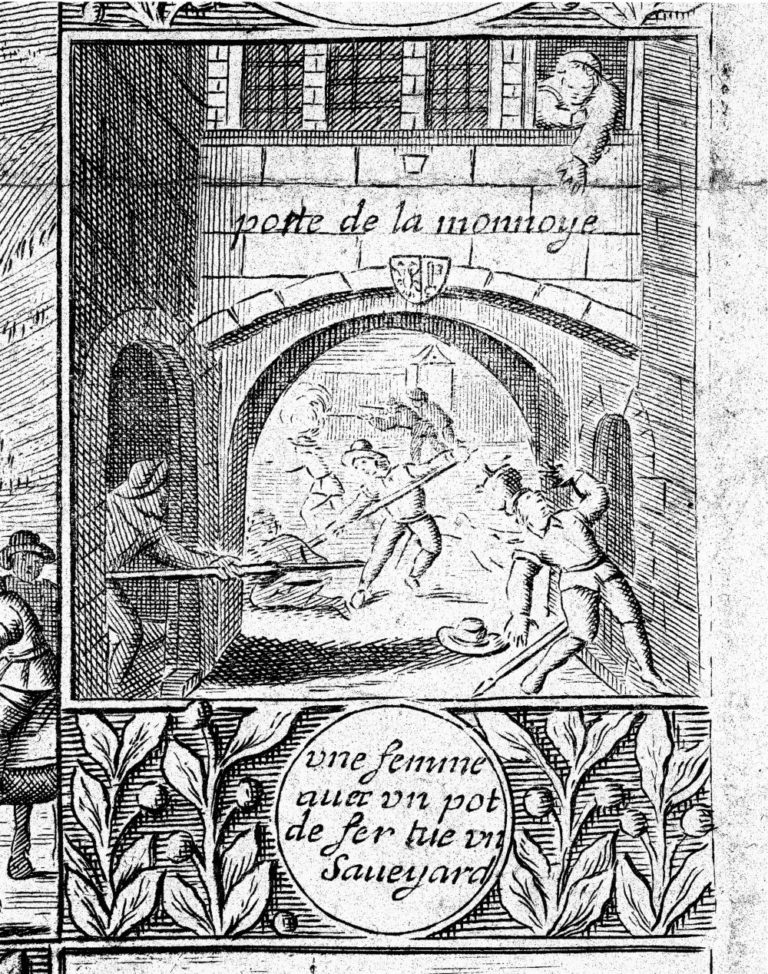 porte de la monnoye
vne femme
auec vn pot
de fer tue vn
Saueyard